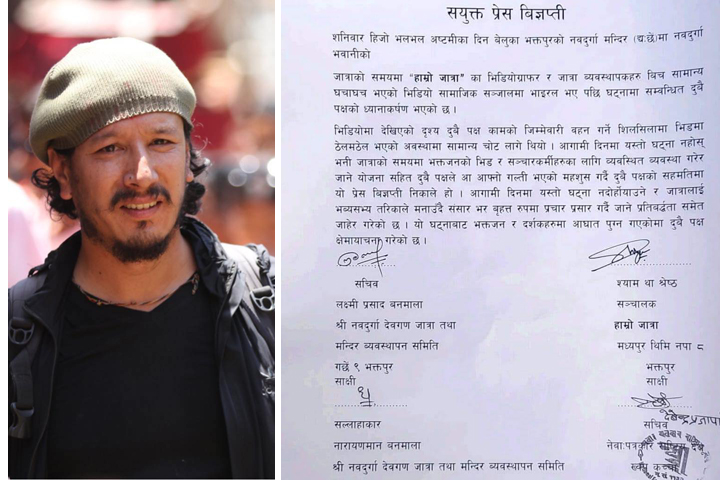 सयुक्त प्रेस बिज्ञप्ती
शनिबार हिजो भलभल अष्टमीका दिन बेलुका भक्तपुरको नवदुर्गा मन्दिर (द्य:छें)मा नवदुर्गा
भवानीको
जात्राको समयमा "हाम्रो जात्रा" का भिडियोग्राफर र जात्रा ब्यवस्थापकहरु बिच सामान्य
घचाघच भएको भिडियो सामाजिक सञ्जालमा भाइरल भए पछि घट्नामा सम्वन्धित दुबै
पक्षको ध्यानाकर्षण भएको छ ।
भिडियोमा देखिएको दृश्य दुबै पक्ष कामको जिम्मेवारी वहन गर्ने शिलसिलामा भिडमा
ठेलमठेल भएको अवस्थामा सामान्य चोट लागे थियो । आगामी दिनमा यस्तो घट्ना नहोस्
भनी जात्राको समयमा भक्तजनको भिड र सञ्चारकर्मीहरुका लागि ब्यवस्थित ब्यवस्था गरेर
जाने योजना सहित दुबै पक्षले आ आफ्नो गल्ती भएको महशुस गर्दै दुबै पक्षको सहमतिमा
यो प्रेस बिज्ञप्ती निकाले हो । आगामी दिनमा यस्तो घट्ना नदोर्होयाउने र जात्रालाई
भब्यसभ्य तरिकाले मनाउँदै संसार भर बृहत्त रुपमा प्रचार प्रसार गर्दै जाने प्रतिबद्धता समेत
जाहेर गरेको छ । यो घट्नाबाट भक्तजन र दर्शकहरुमा आघात पुग्न गएकोमा दुबै पक्ष
क्षेमायाचना गरेको छ ।
सचिव
श्याम था श्रेष्ठ
लक्ष्मी प्रसाद बनमाला
सञ्चालक
श्री नवदुर्गा देवगण जात्रा तथा
हाम्रो जात्रा
मन्दिर ब्यवस्थापन समिति
मध्यपुर थिमि नपा ८
गछें ९ भक्तपुर
भक्तपुर
साक्षी
साक्षी
सल्लाहाकार
सचिव
नारायणमान बनमाला
नेवा:पत्रकार
श्री नवदुर्गा देवगण जात्रा तथा मन्दिर ब्यवस्थापन समिति